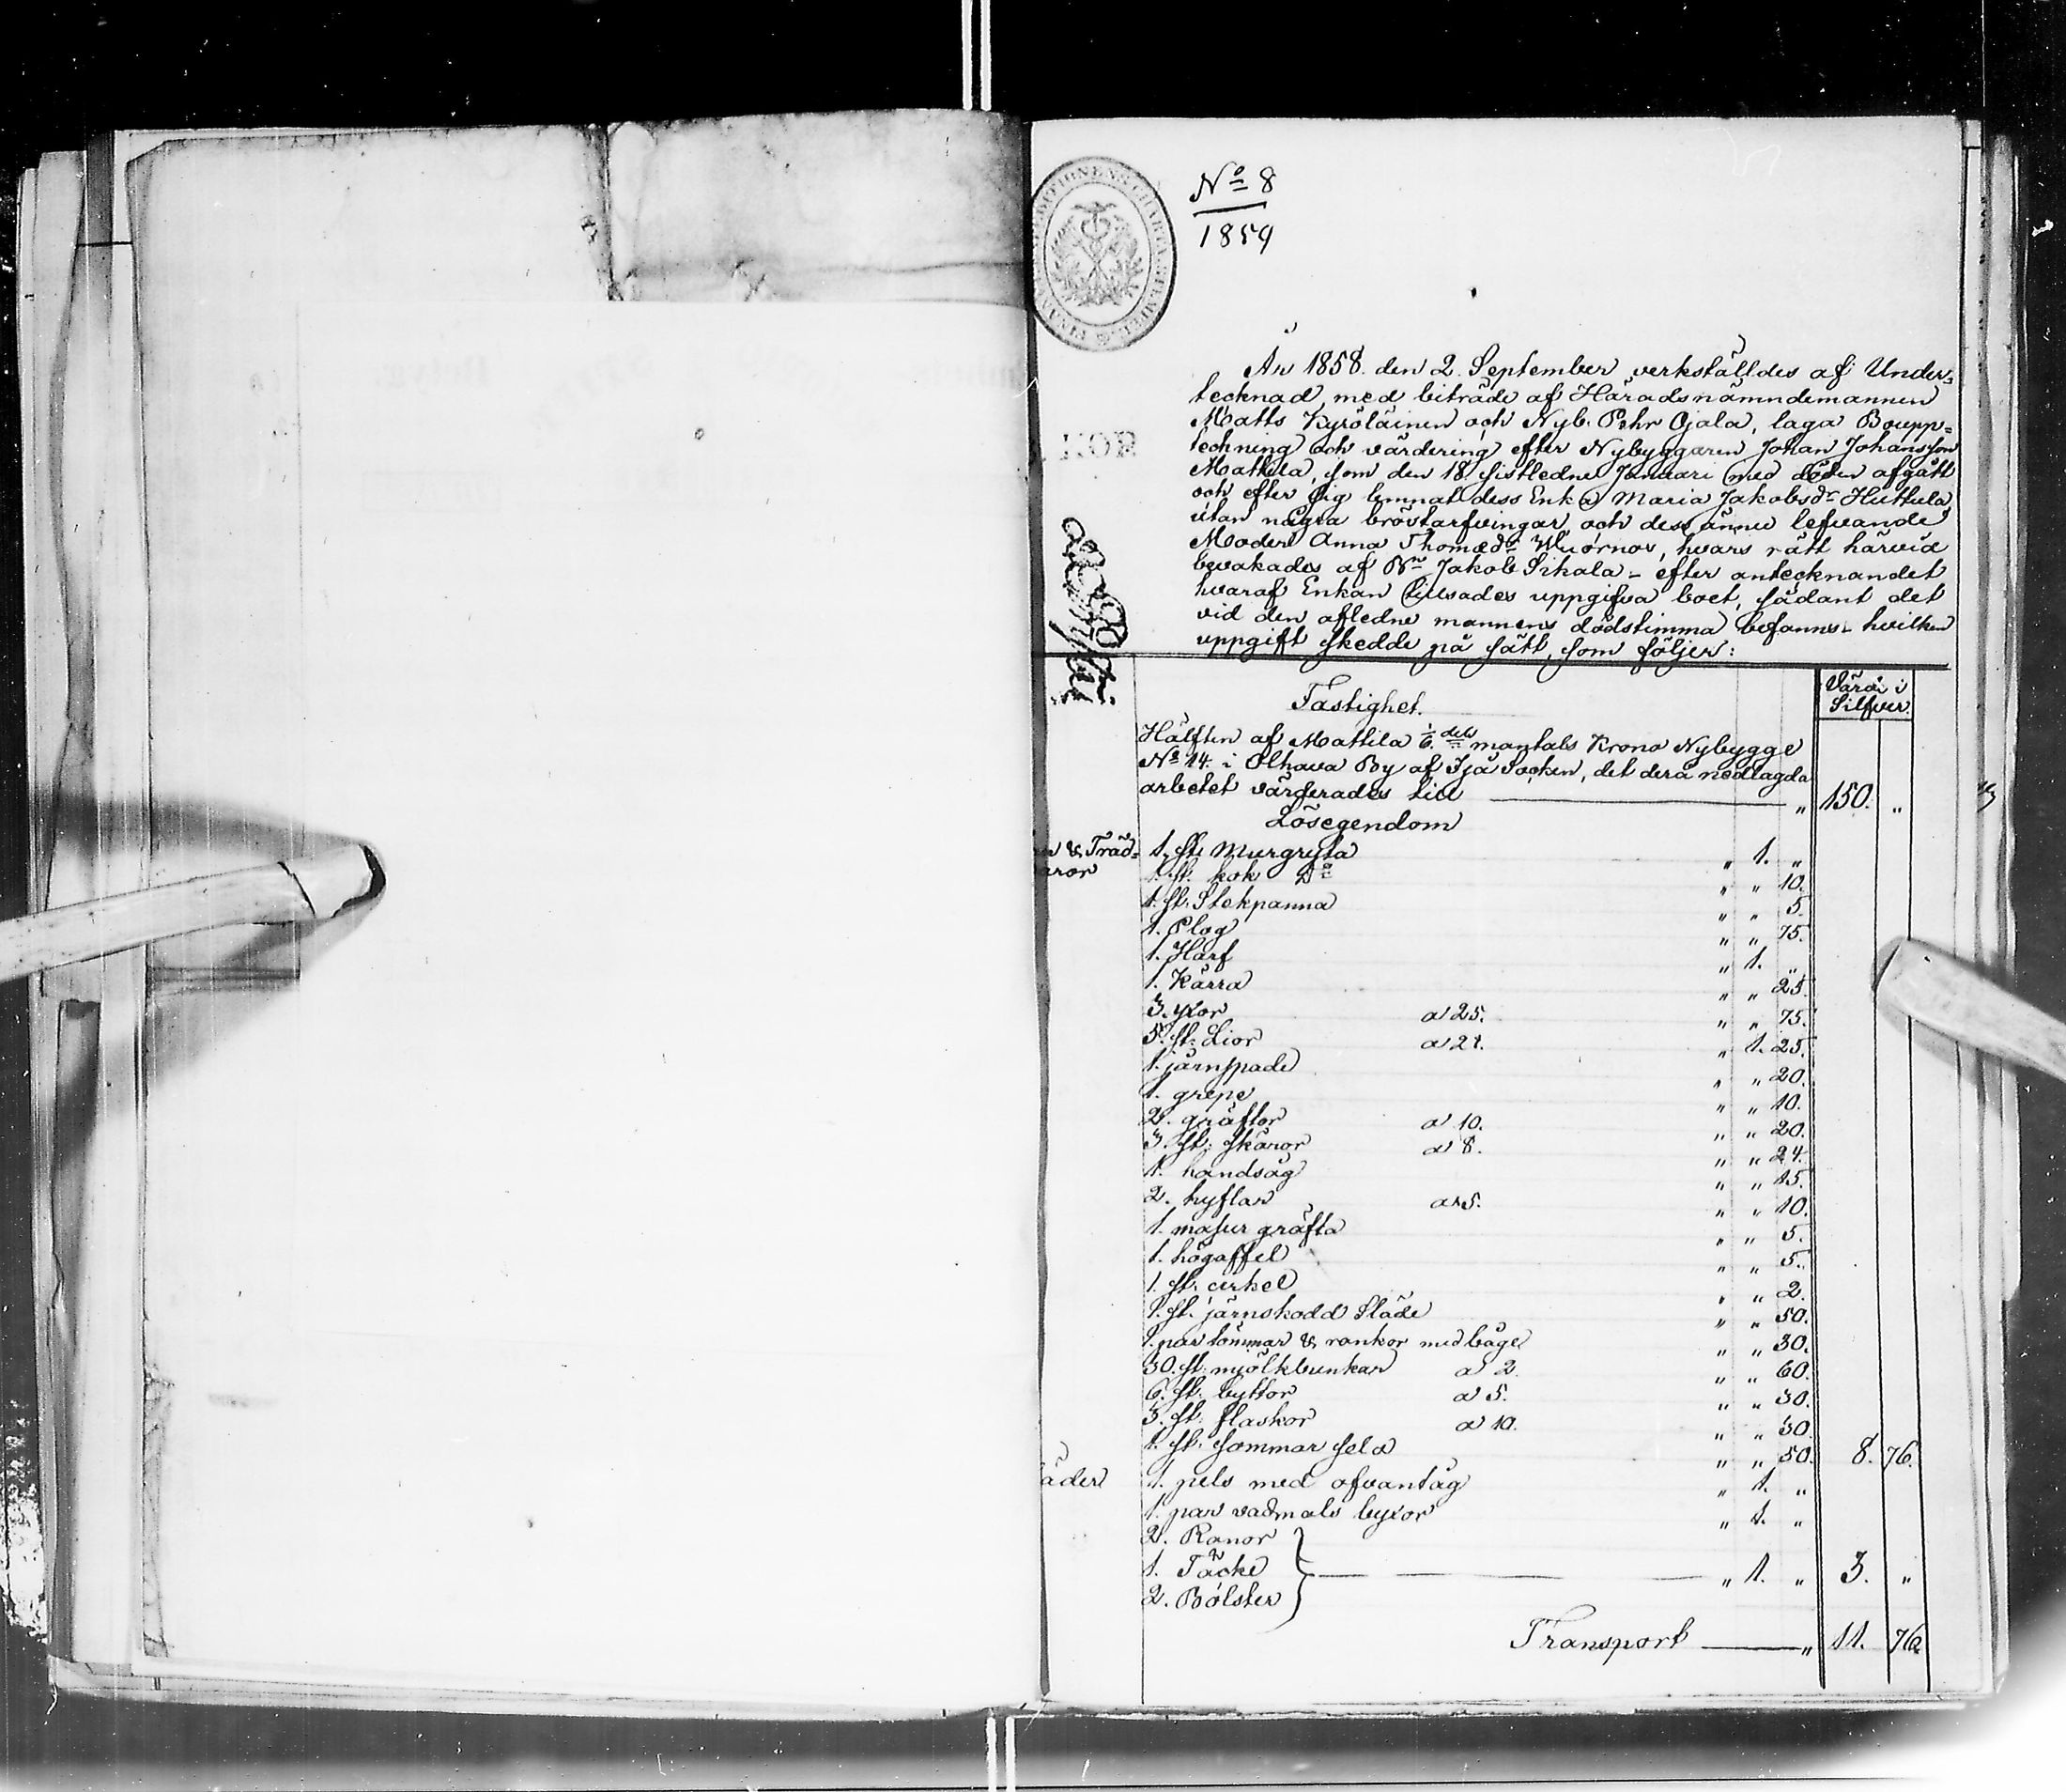 No 8
1859
År 1858 den 2. September verkställdes af Under=
tecknad, med biträde af Häradsnämndemannen
Matts Kyröläinen och Nyb. Pehr Ojala, laga Boupp=
teckning och värdering efter Nybyggaren Johan Johansson
Mattila, som den 18 sistledne Januari med döden afgått
och efter sig lemnat dess Enka Maria Jakobsdr Huttula,
utan några bröstarfvingar, och dess ännu lefvande
Moder Anna Thomædr Wuornos, hvars rätt härvid
bevakades af Bn Jakob Sihala - efter antecknandet
hvaraf Enkan tillsades uppgifva boet, sådant det
vid den aflednе mannens dödstimma befanns - hvilken
uppgift skedde på sätt, som följer:
Värde i
Silfver.
Fastighet.
Hälften af Mattila 1/6. dels mantals Krono Nybygge
No 14. i Olhava By af Ijå Socken, det derå nedlagda
arbetet värderades till " 150. "
Lösegendom
& Träd= 1. st. Murgryta " 1. "
aror 1. st. kok Do " " 10.
1. st. Stekpanna " " 5.
1. Plog " " 75.
1. Harf " 1. "
1. Kärra " " 25.
3. yxor a 25. " " 75.
5. st. Lior a 21. " 1. 25.
1. järnspade " " 20.
1. grepe " " 10.
2. gräftor a 10. " " 20.
3. st. skäror a 8. " " 24.
1. handsåg " " 15.
2. hyflar a 5. " " 10.
1. masur gräfta " " 5.
1. högaffel " " 5.
1. st. cirkel " " 2.
1. st. järnskodd Släde " " 50.
1. par tömmar & rankor med båge " " 30.
30. st. mjölkbunkar a 2. " " 60.
6. st. byttor a 5. " " 30.
3. st. flaskor a 10. " " 30.
1. st. sommar sela " " 50. 8. 76.
äder 1. pels med ofvantåg " 1. "
1. par vadmals byxor " 1. "
2. Ranor
1. Täcke " 1. " 3. "
2. Bolster
Transport " 11. 76.